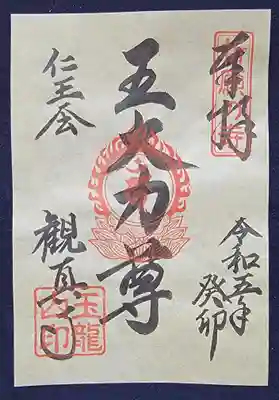 奉拝
令和五年
癸卯
五大力尊
仁王会
観真
玉龍
印